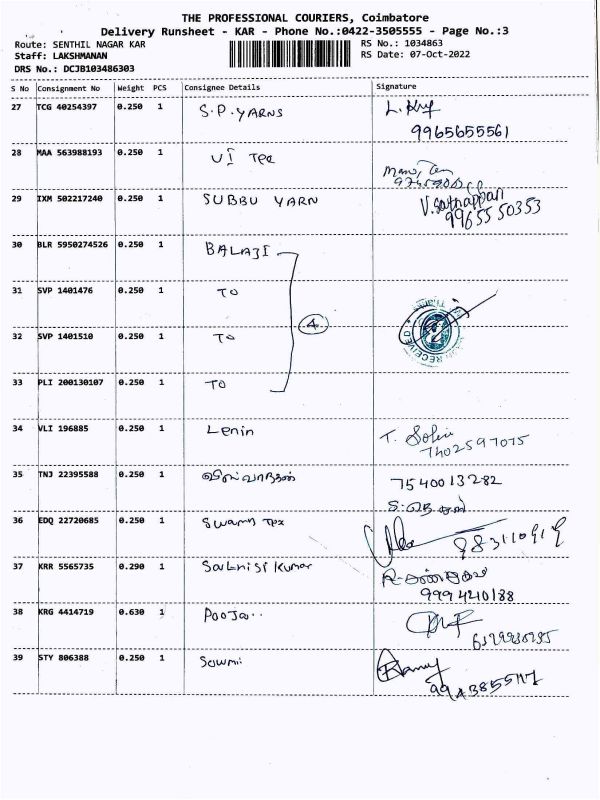 THE PROFESSIONAL COURIERS, Coimbatore
Delivery Runsheet - KAR - Phone No.:0422-3505555 - Page No.:3
Route: SENTHIL NAGAR KAR
Staff: LAKSHMANAN
DRS No.: DCJB103486303
RS No.: 1034863
RS Date: 07-Oct-2022
S No Consignment No Weight PCS Consignee Details Signature
27 TCG 40254397 0.250 1 S.P.YARNS
9965655561
28 MAA 563988193 0.250 1 VI Tex
29 IXM 502217240 0.250 1 SUBBU YARN V.Sathappan
9965550353
30 BLR 5950274526 0.250 1 BALAJI
31 SVP 1401476 0.250 1 TO
4
32 SVP 1401510 0.250 1 TO
RECEIVED
33 PLI 200130107 0.250 1 TO
34 VLI 196885 0.250 1 Lenin T.
7402597075
35 TNJ 22395588 0.250 1 7540013282
36 EDQ 22720685 0.250 1 Swamy Tex
37 KRR 5565735 0.290 1 Kumar
9994210188
38 KRG 4414719 0.630 1 Pooja..
39 STY 806388 0.250 1 Sowmi